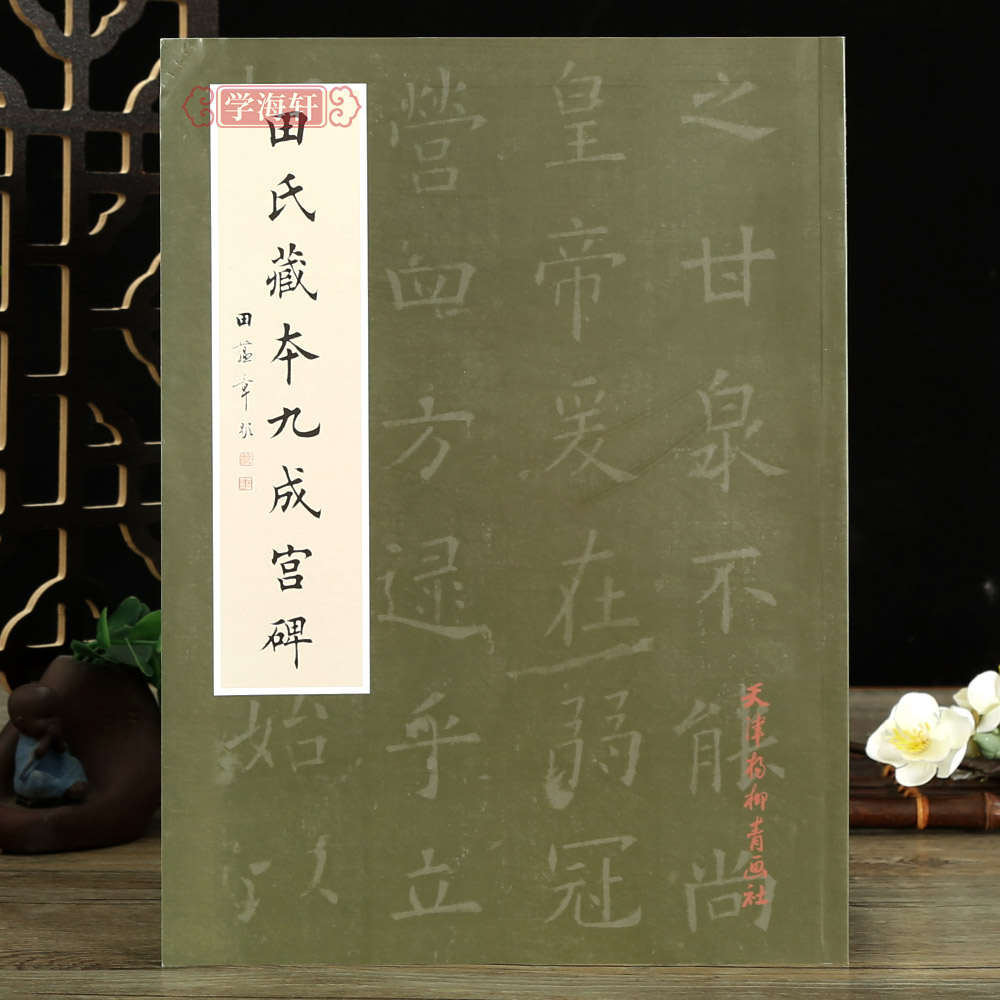 学海轩
田氏藏本九成宫碑
田蕴章题
之甘泉不能尚
皇帝爰在弱冠
营四方逯乎立
始以
天津杨柳青画社